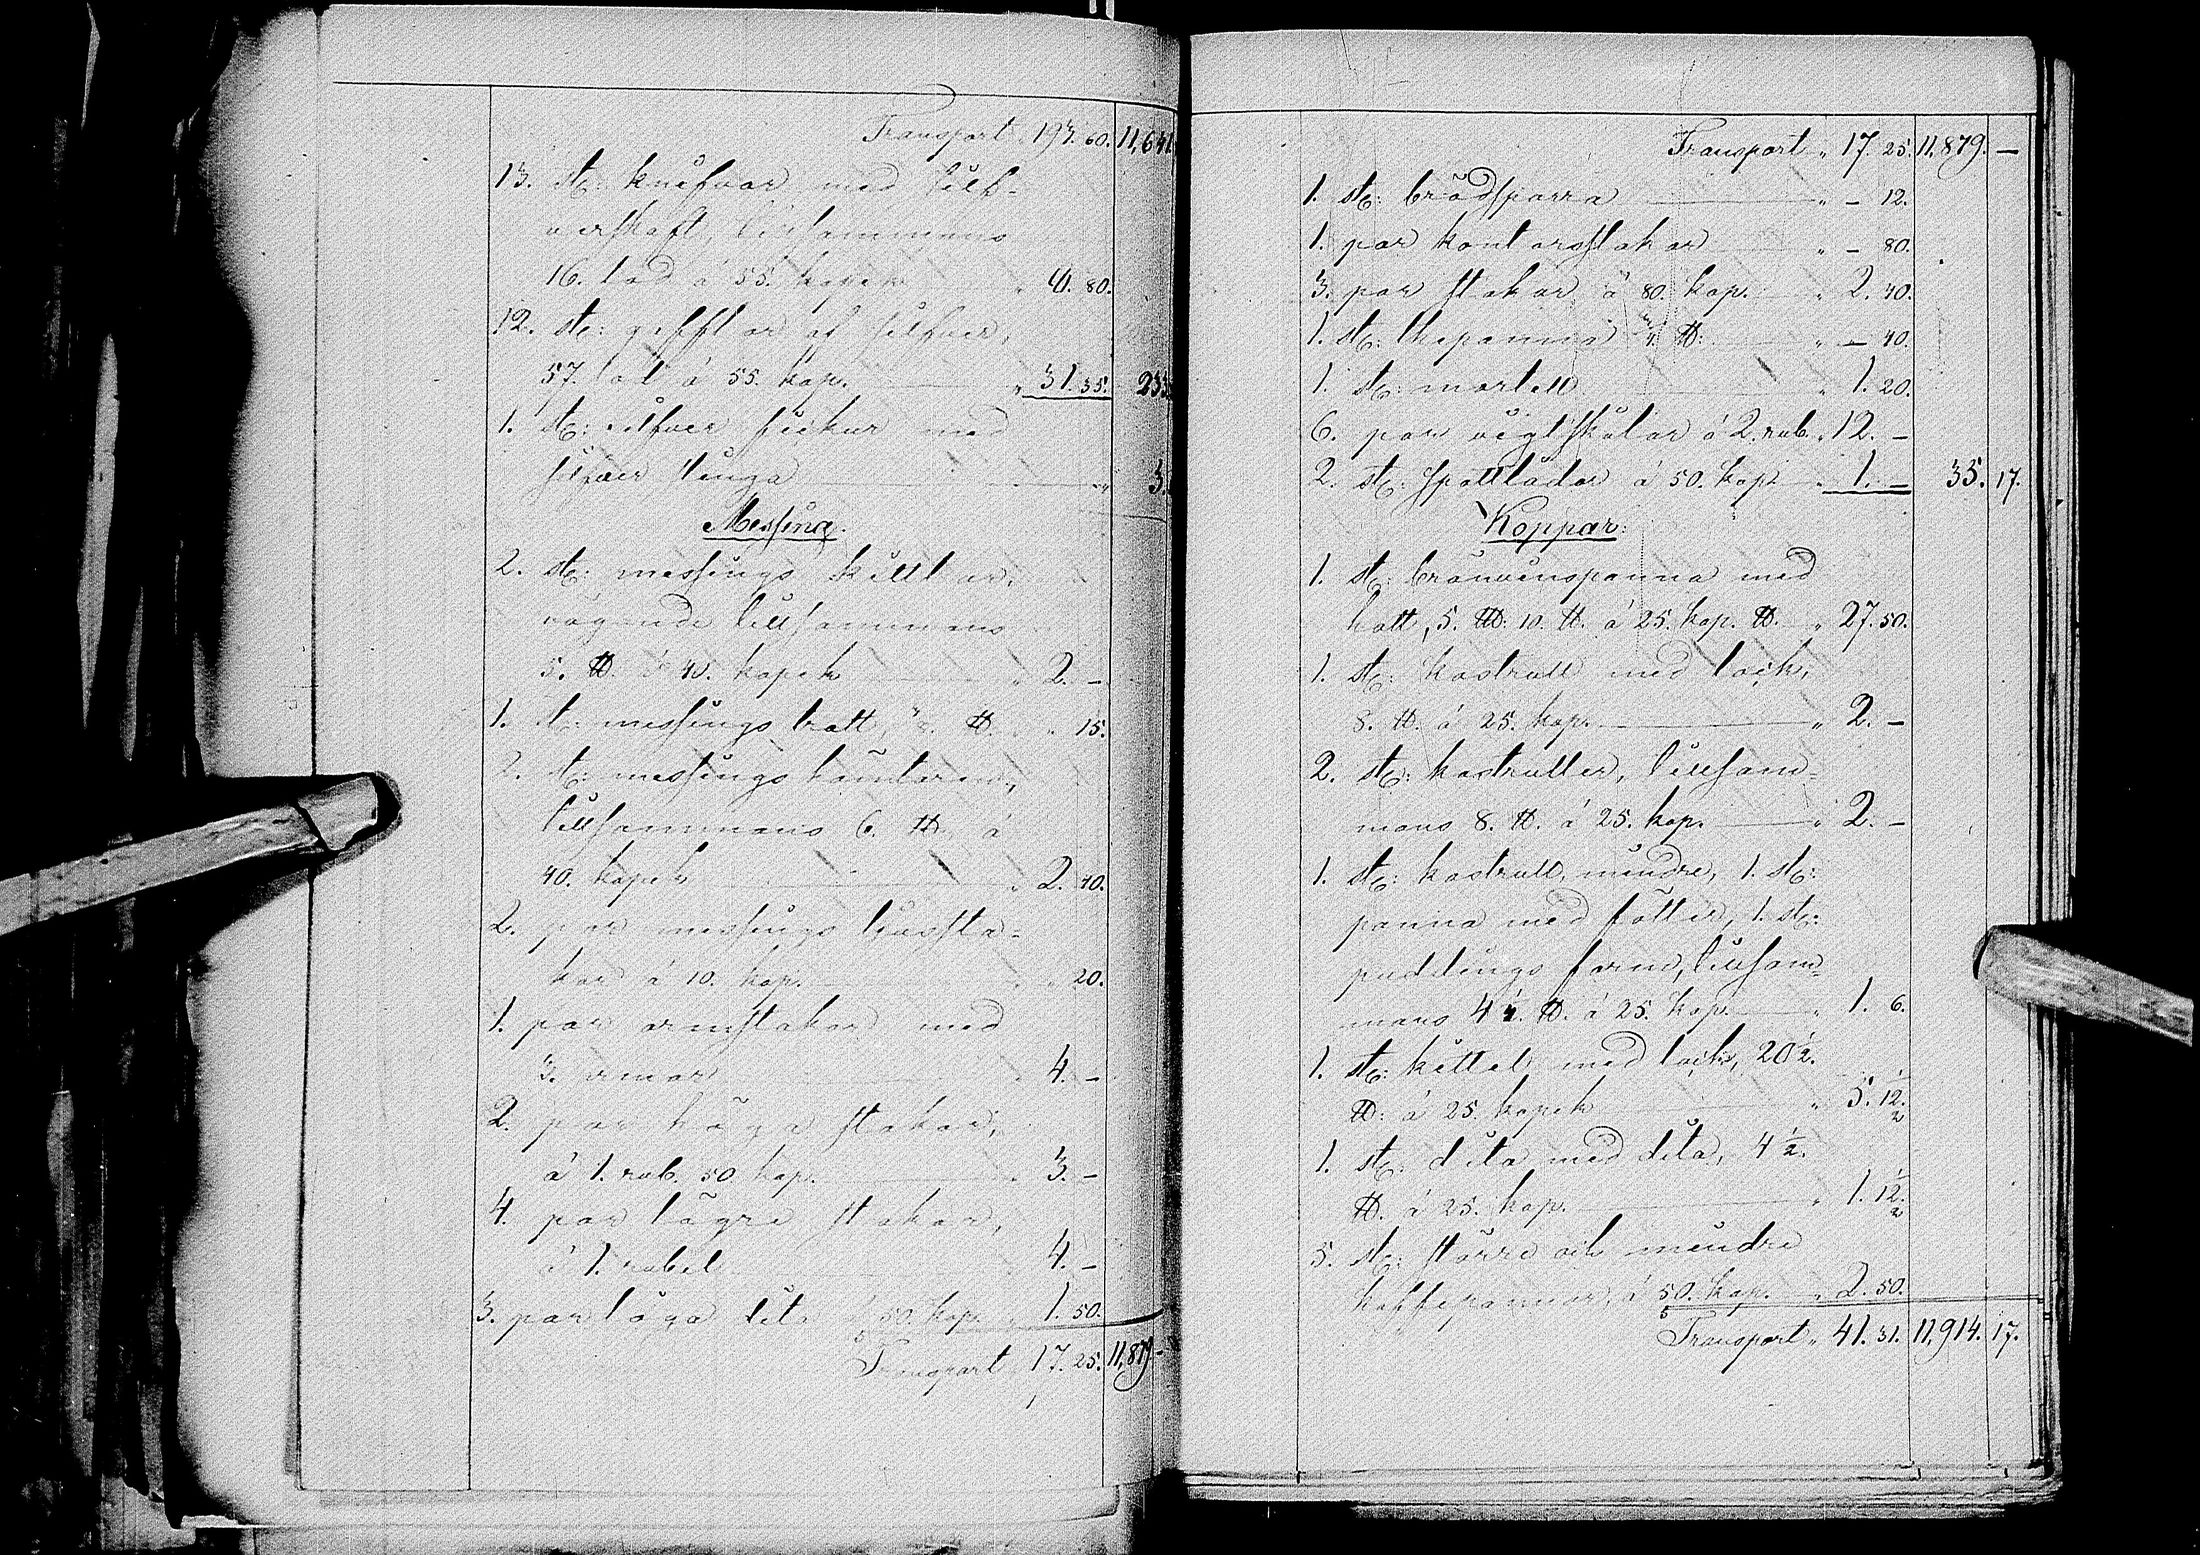 Transport " 193. 60. 11,641
13. st: knifvar med silf-
verskaft, tillsammans
16. lod á 55. kopek " 8. 80.
12. st: gafflar af silfver,
57. lod á 55. kop. " 31. 35. 233
1. st: silfver sucker med
silfver stänga " 3.
Messing.
2. st: messings kittlar,
vägande tillsammans
5. ℔. á 40. kopek " 2. –
1. st: messings tratt, ℔. " 15.
2. st: messings
tillsammans 6. ℔. á
40. kopek " 2. 40.
2. par messings ljussta-
kar á 10. kop. " " 20.
1. par armstakar med
3. armar " 4. –
2. par höga stakar,
á 1. rub. 50 kop. " 3. –
4. par lägre stakar,
á 1. rubel " 4. –
3. par låga dito á 50. kop. " 1. 50.
Transport " 17. 25. 11,879 –
Transport " 17. 25. 11,879. –
1. st: brödsporra " – 12.
1. par kontorsstakar " – 80.
3. par stakar á 80. kop. " 2. 40.
1. st: thepanna ℔: " – 40.
1. st: mortell " 1. 20.
6. par vigtskålar á 2. rub. " 12. –
2. st: spottlådor á 50. kop. " 1. – 35. 17.
Koppar:
1. st: bränvinspanna med
hatt, 5. L℔: 10. ℔. á 25. kop. ℔. " 27. 50.
1. st: kastrull med lock,
8. ℔. á 25. kop. " 2. –
2. st: kastruller, tillsam-
mans 8. ℔. á 25. kop. " 2. –
1. st: kastrull, mindre, 1. st:
panna med fötter, 1. st:
puddings form, tillsam-
mans 4 1/4. ℔. á 25. kop. " 1. 6.
1. st: kittel med lock, 20 1/2.
℔: á 25. kopek " 5. 12 1/2.
1. st: dito med dito, 4 1/2.
℔. á 25. kop. " 1. 12 1/2.
5. st: större och mindre
kaffepannor, á 50. kop. " 2. 50.
Transport " 41. 31. 11,914. 17.